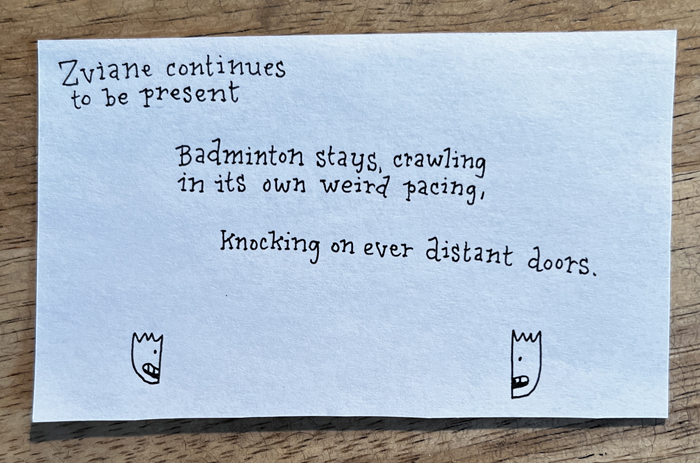 Zviane continues
to be present
Badminton stays, crawling
in its own weird pacing,
Knocking on ever distant doors.